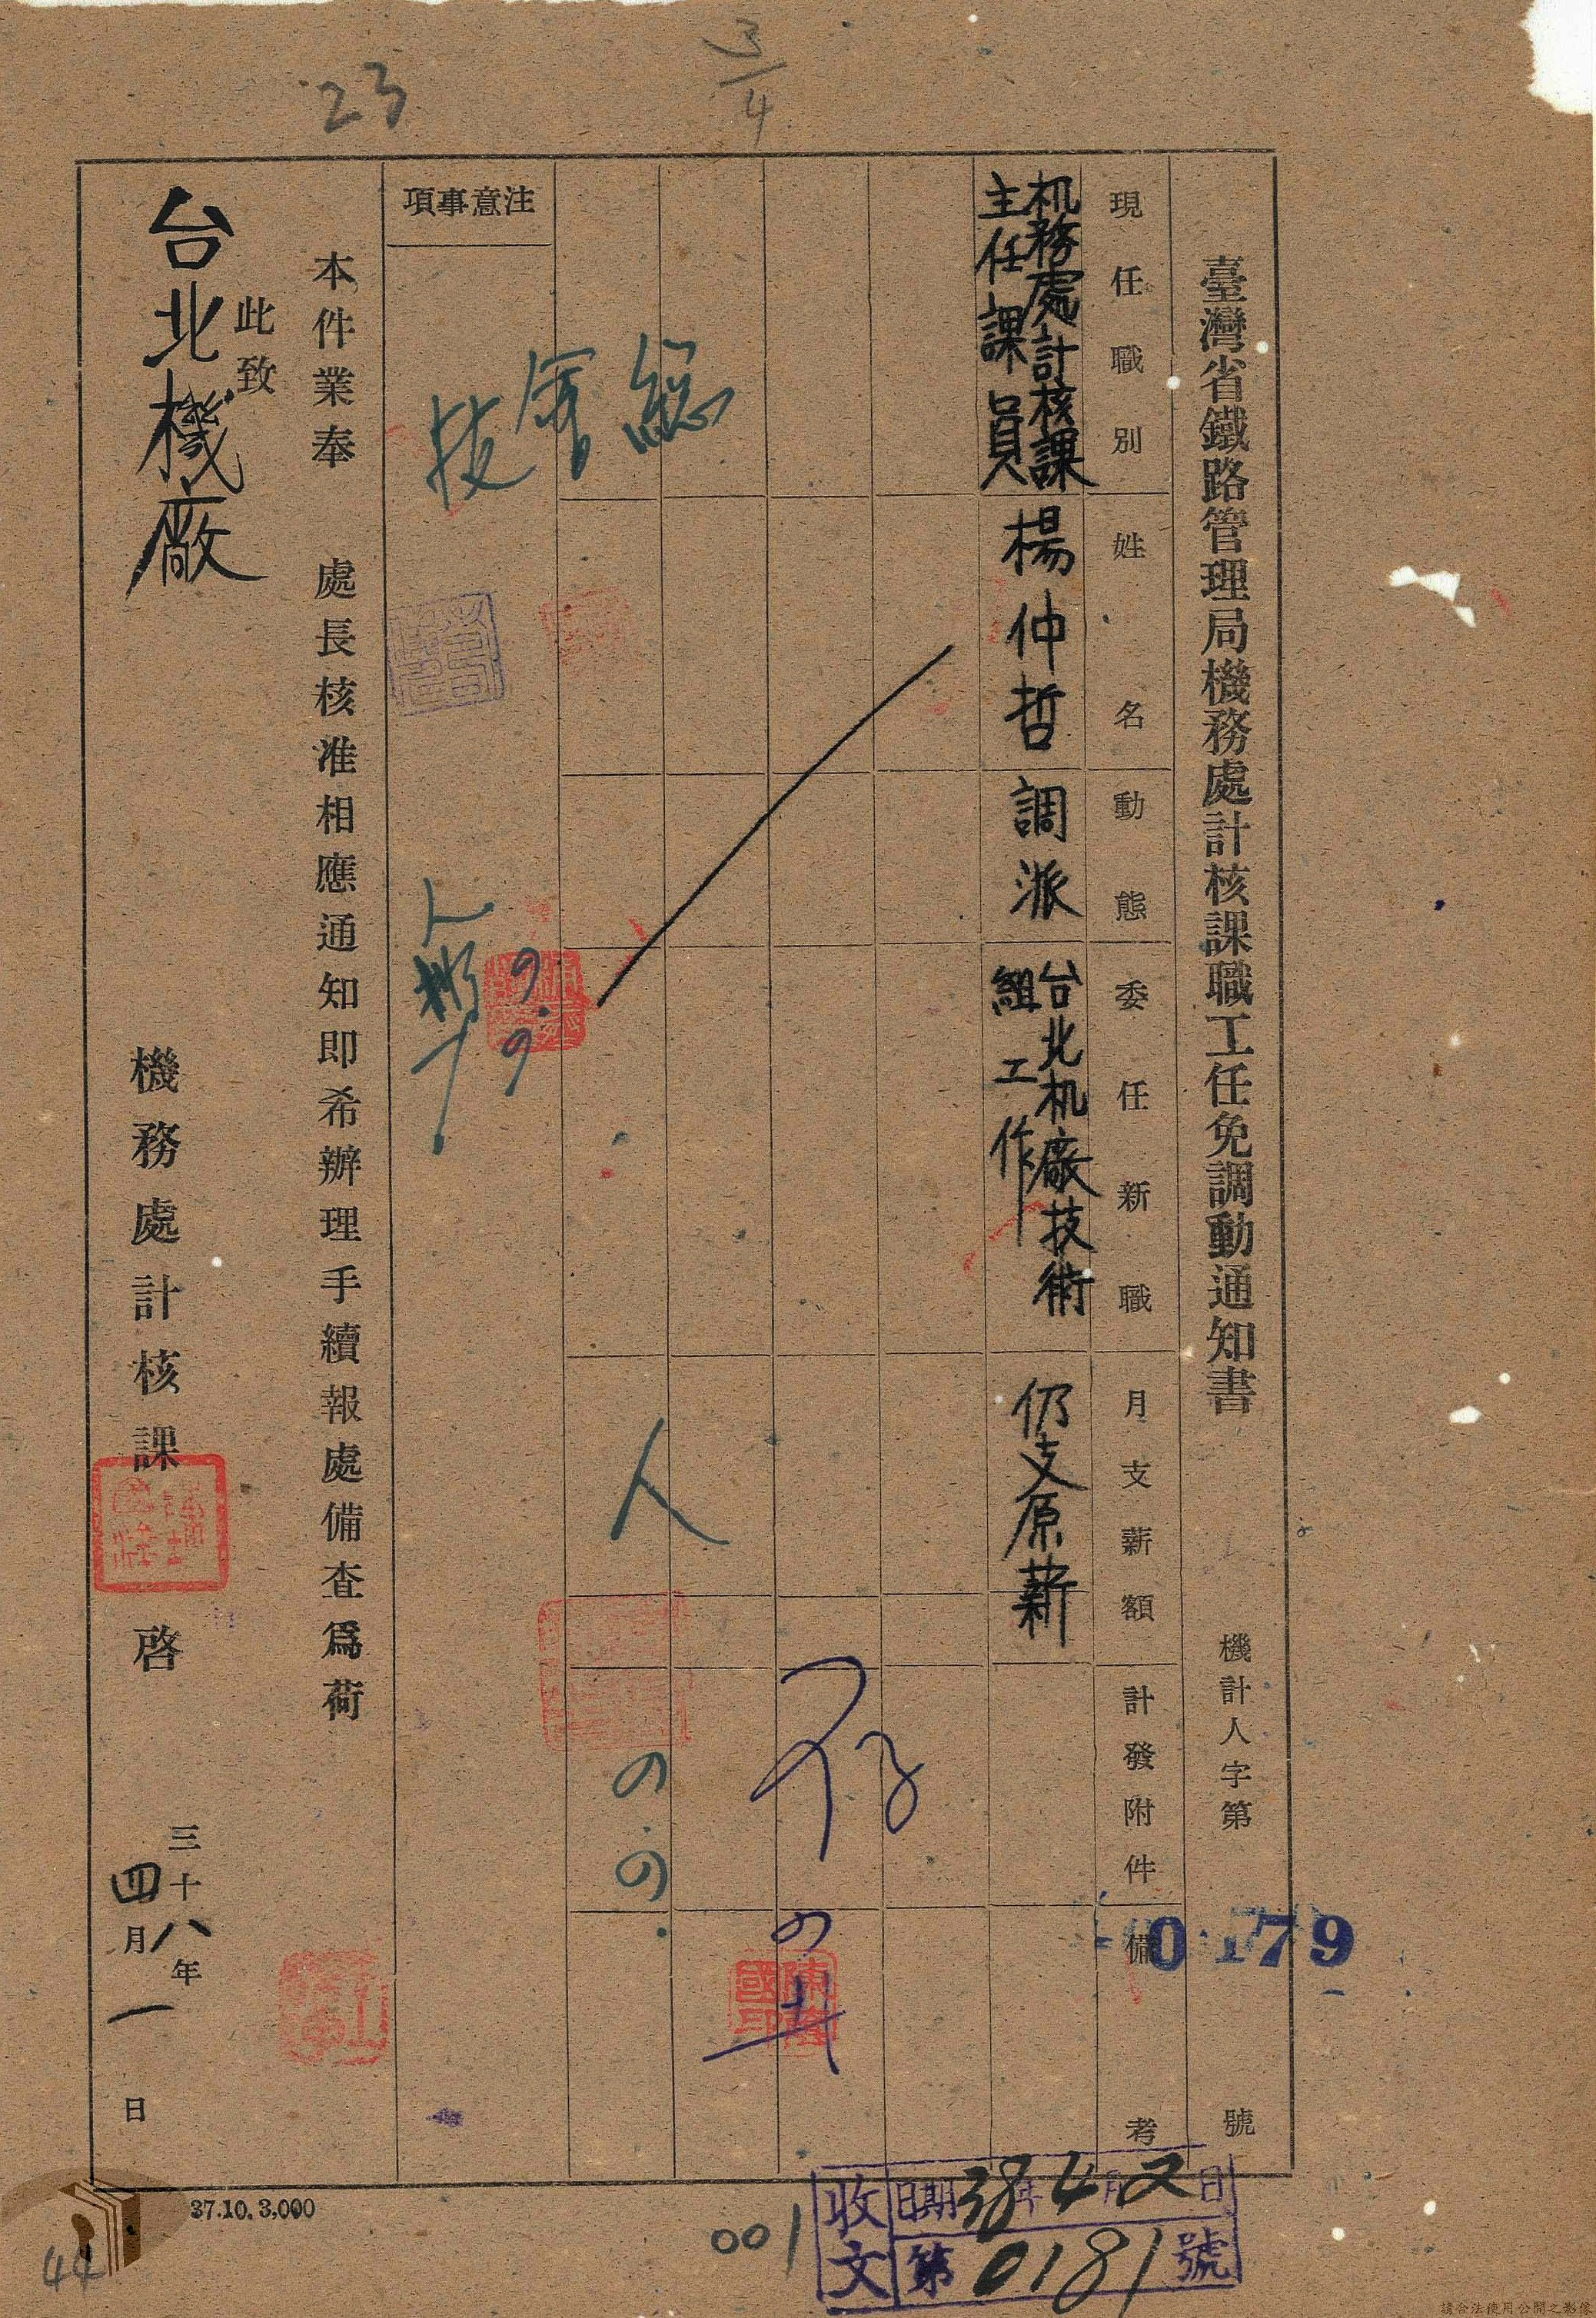 23
3/4
臺灣省鐵路管理局機務處計核課職工任免調動通知書
機計人字第
0179
號
現任職別
姓名
動態
委任新職
月支薪額
計發附件
備考
机務處計核課
主任課員
楊仲哲
調派
台北机廠技術
組工作
仍支原薪
注意事項
總
技
人
人
存
陳
國
印
本件業奉 處長核准相應通知即希辦理手續報處備查爲荷
此致
台北機廠
機務處計核課 啓
三十八年
四月一日
37.10.3,000
001
收文
日期38年4月2日
第0181號
44
請合法使用公開之影像